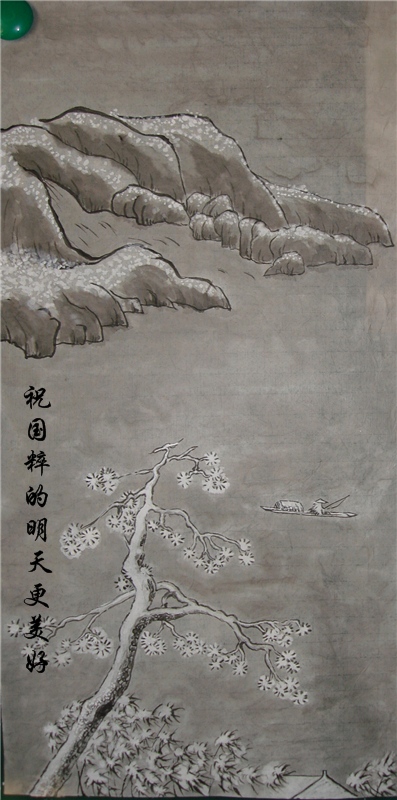 祝国粹的明天更美好